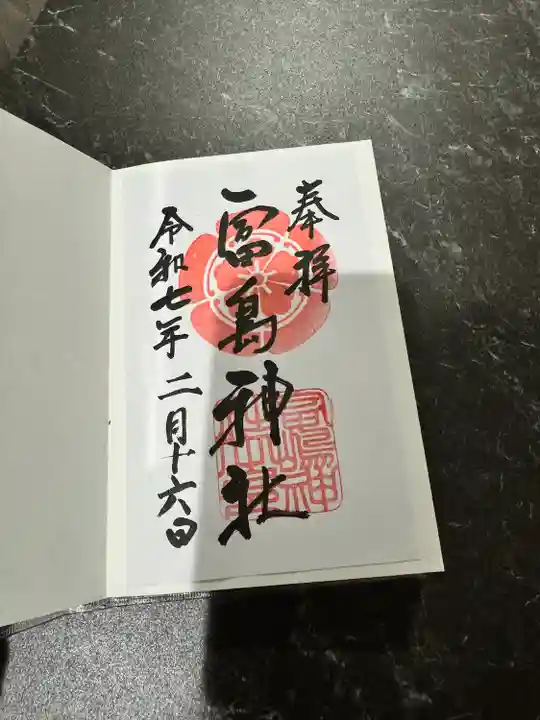 奉拝
冨島神社
令和七年 二月十六日